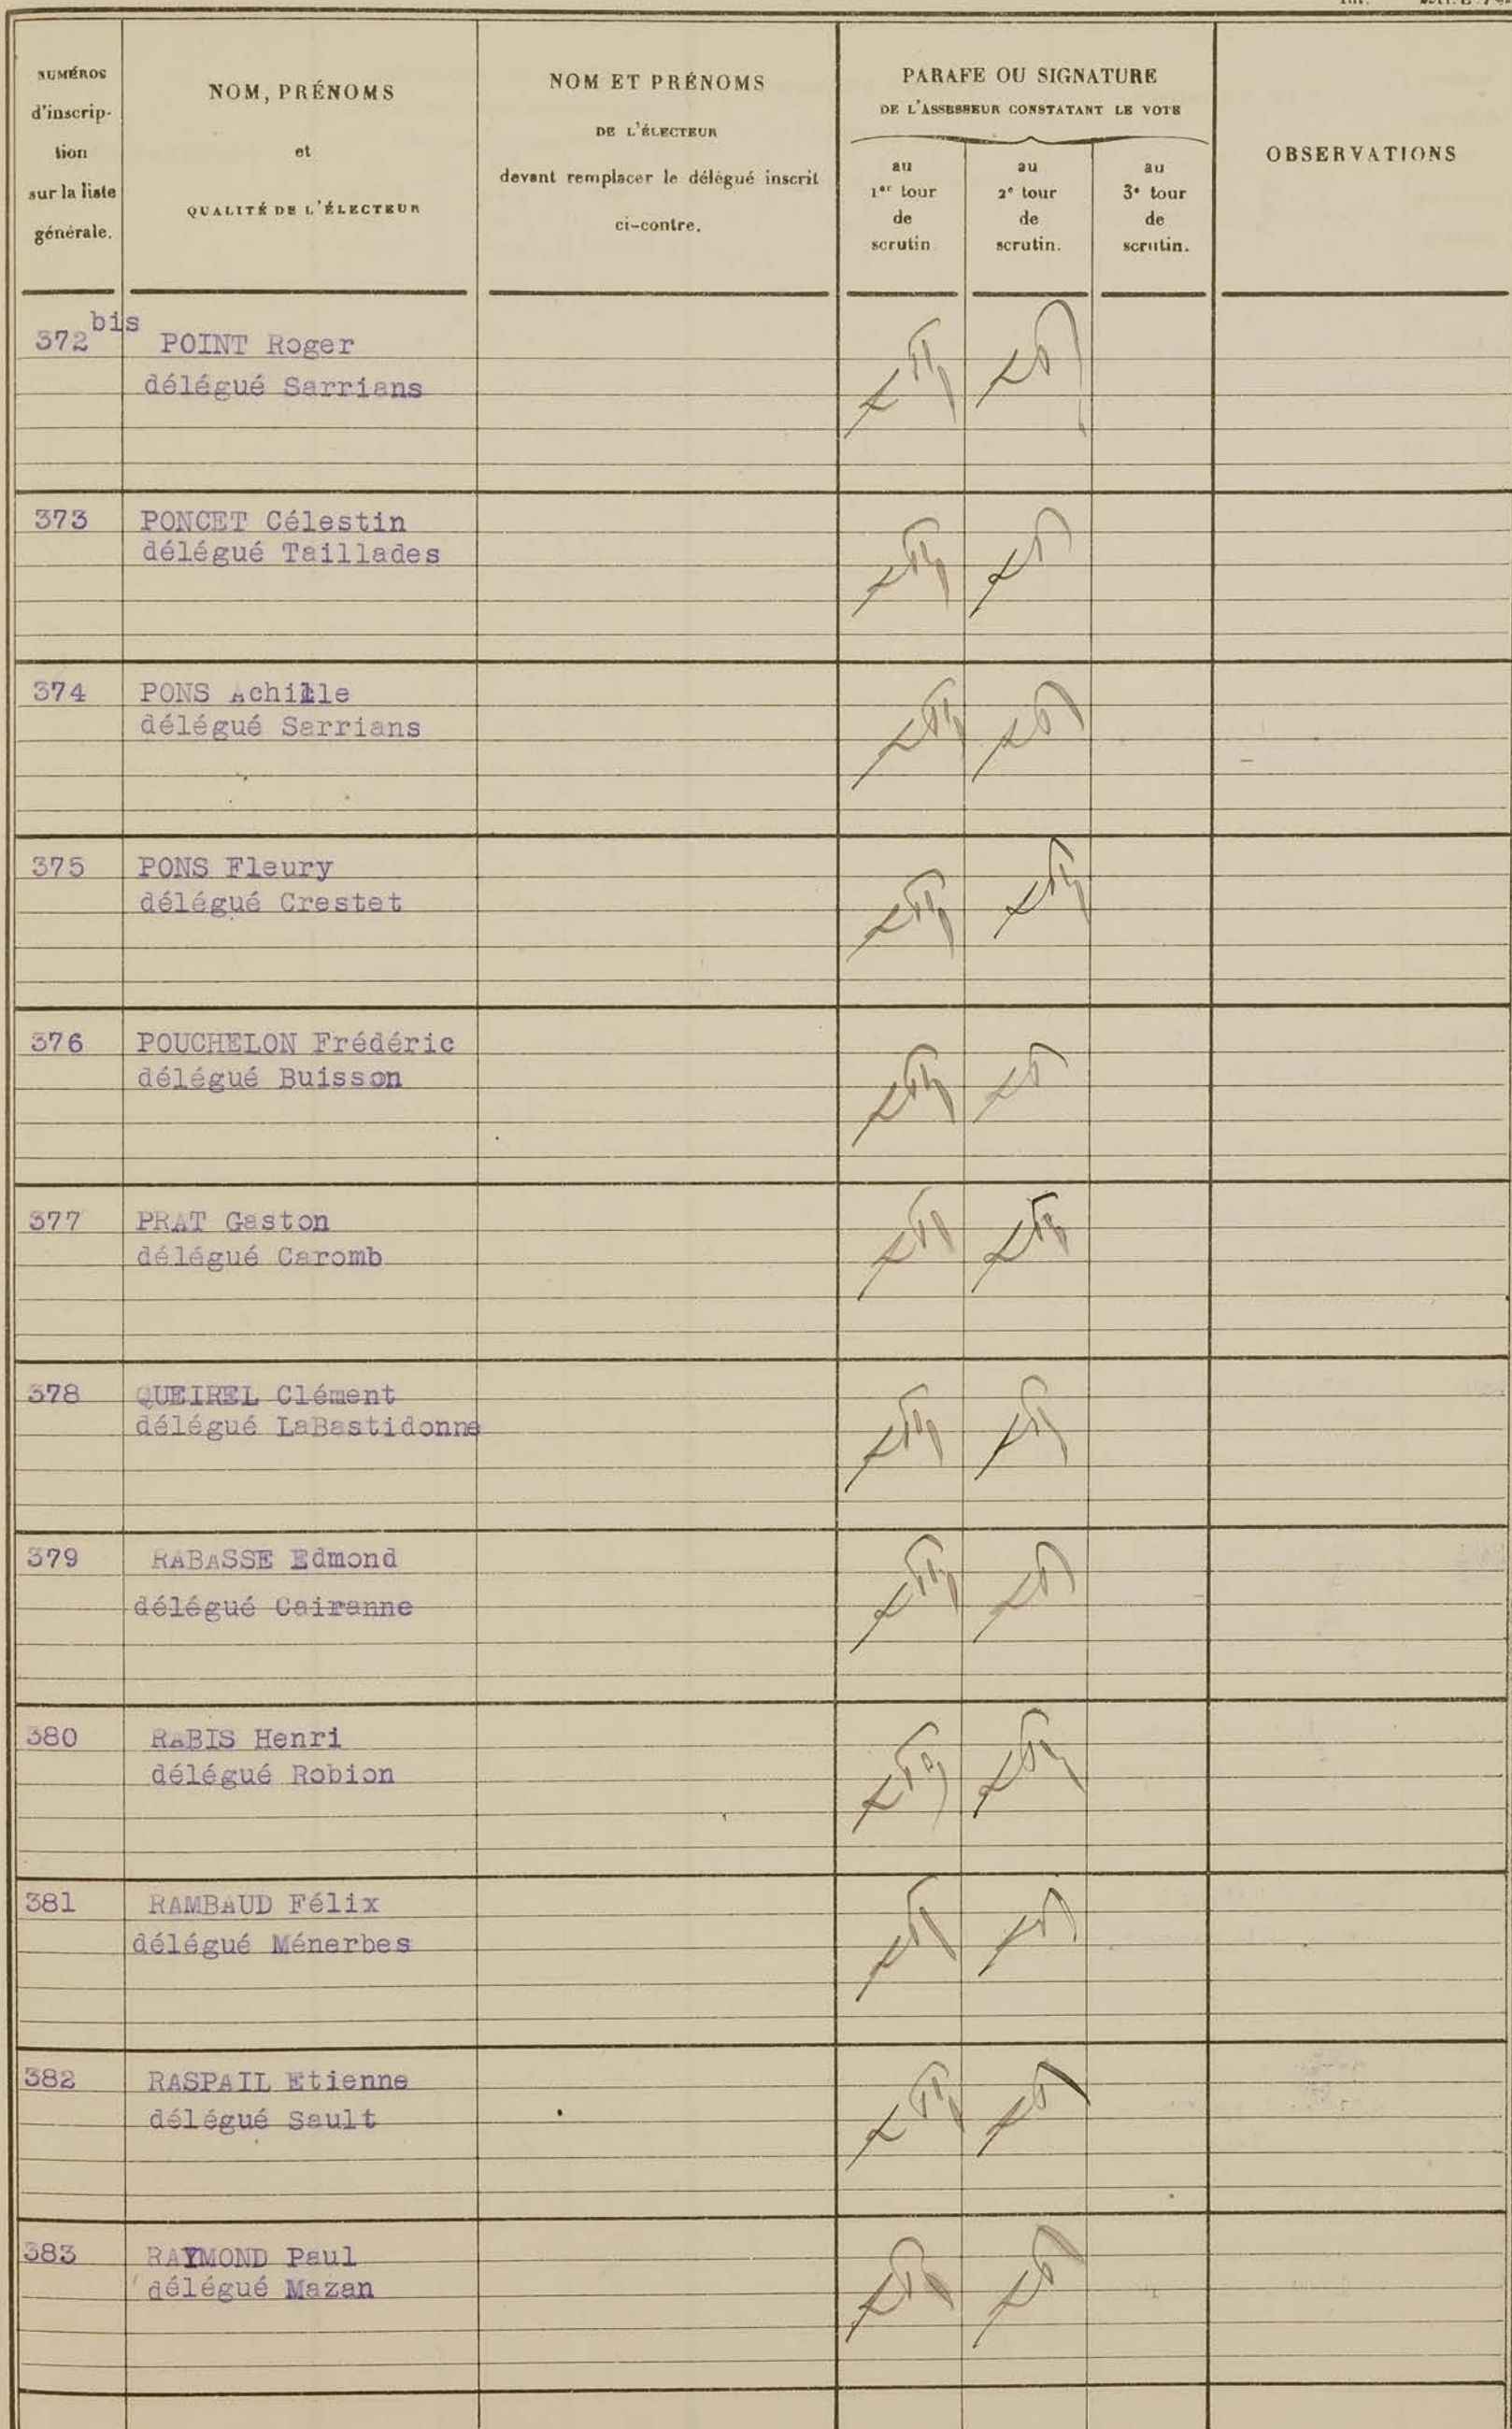 NUMÉROS
d'inscrip-
tion
sur la liste
générale.
NOM, PRÉNOMS
et
QUALITÉ DE L'ÉLECTEUR
NOM ET PRÉNOMS
DE L'ÉLECTEUR
devant remplacer le délégué inscrit
ci-contre.
PARAFE OU SIGNATURE
DE L'ASSESSEUR CONSTATANT LE VOTE
au
1er tour
de
scrutin
au
2e tour
de
scrutin.
au
3e tour
de
scrutin.
OBSERVATIONS
372 bis POINT Roger
délégué Sarrians
373 PONCET Célestin
délégué Taillades
374 PONS Achille
délégué Sarrians
375 PONS Fleury
délégué Crestet
376 POUCHELON Frédéric
délégué Buisson
377 PRAT Gaston
délégué Caromb
378 QUEIREL Clément
délégué LaBastidonne
379 RABASSE Edmond
délégué Cairanne
380 RABIS Henri
délégué Robion
381 RAMBAUD Félix
délégué Ménerbes
382 RASPAIL Etienne
délégué Sault
383 RAYMOND Paul
délégué Mazan